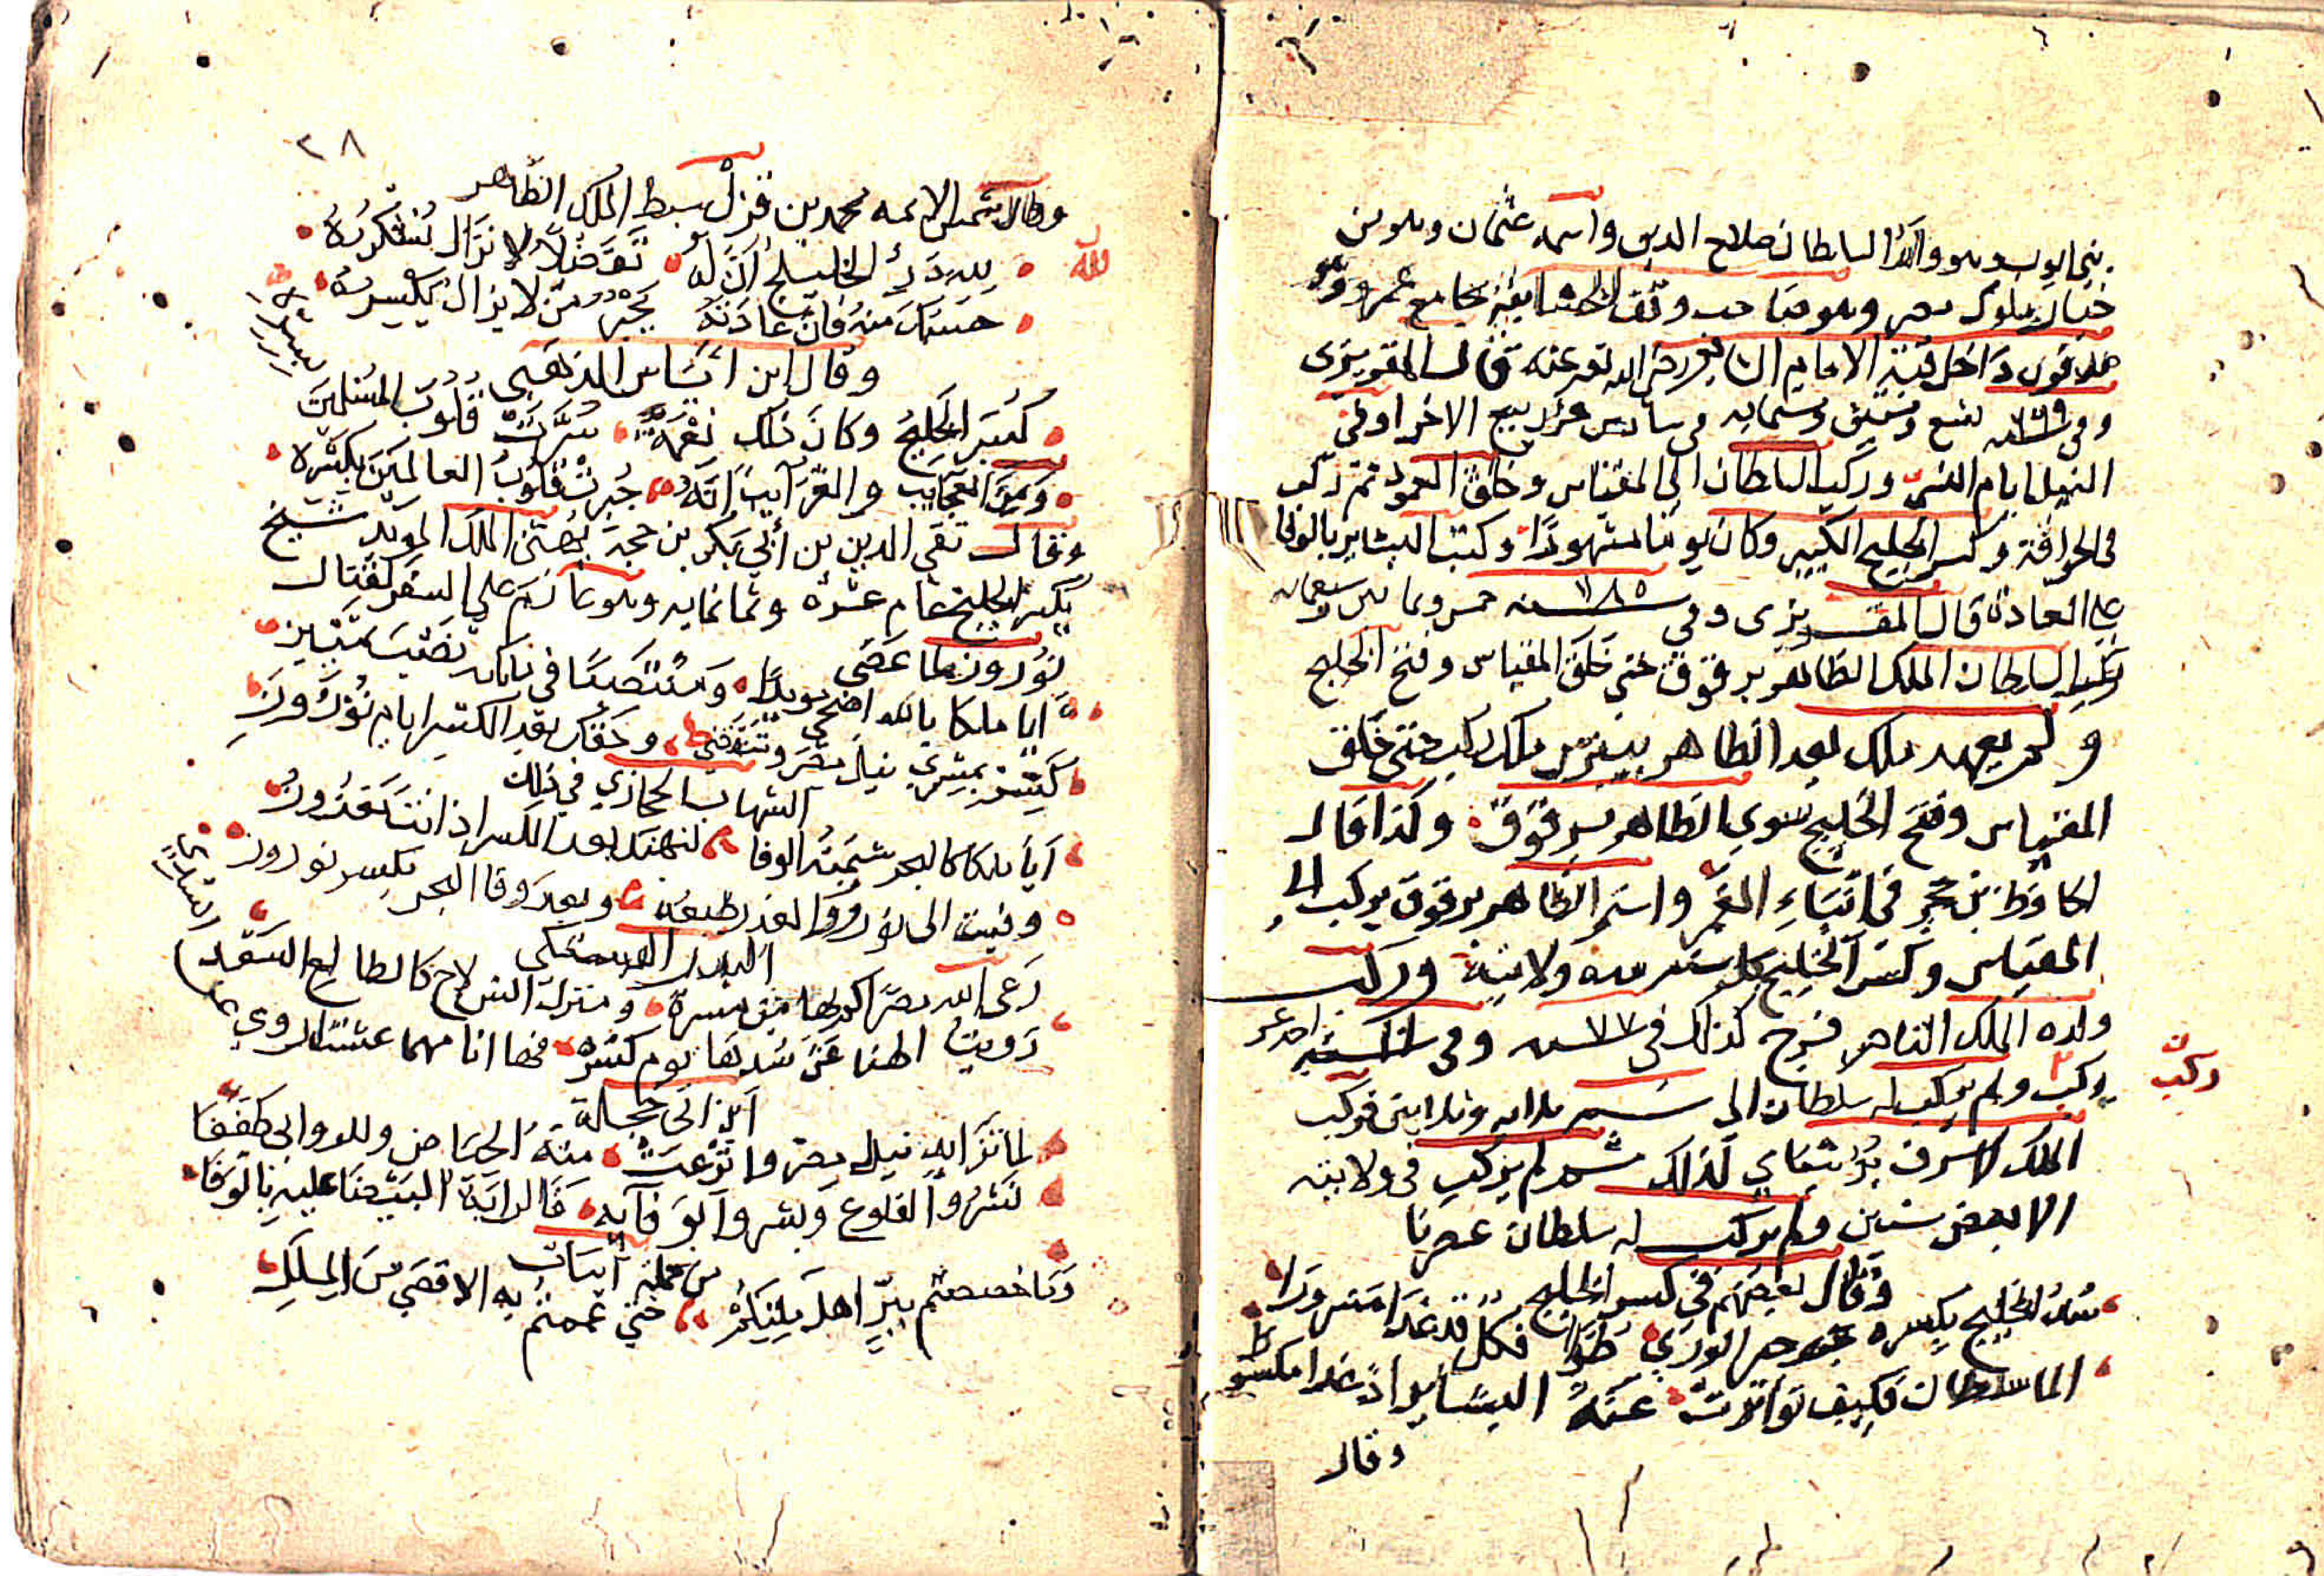 بني ايوب وهو والد السلطان صلاح الدين واسمه عثمان وهو من
خيار ملوك مصر وهو صاحب وقف الخشابية بجامع عمرو وهو
مدفون داخل قبة الامام الشافعي رضي الله تعالى عنه قال المقريزي
وفي ٧٦٩ سنة تسع وستين وسبماية في سادس عشر ربيع الاخر اوفى
النيل ايام النسي وركب السلطان الى المقياس وخلق العمود ثم ركب
في الحراقة وكسر الخليج الكبير وكان يوما مشهودا وكتب البشاير بالوفا
على العادة قال المقريزي وفي سنة ٧٨٥ خمس وثمانين وسبعمايه
ركب السلطان الملك الظاهر برقوق حتى خلق المقياس وفتح الخليج
ولم يعهد ملك بعد الظاهر بيبرس ملك ركب حتى خلق
المقياس وفتح الخليج سوى الظاهر برقوق وكذا قال
الحافظ بن حجر في انباء الغمر واستمر الظاهر برقوق يركب الى
المقياس وكسر الخليج كل سنة مدة ولايته وركب
ولده الملك الناصر فرج كذلك في سنة وفي
احد عشر
ركب
ركب ولم يركب له سلطان الى سنة ثلاثه وثلاثين فركب
الملك الاشرف برسباي لذلك ثم لم يركب في ولايته
الا بعض سنين ولم يركب له سلطان عصرنا
وقال بعضهم في كسر الخليج
سد الخليج بكسره جبر الورى طرا فكل قد غدا مسرورا
الما سلطان فكيف تواترت عنه البشاير اذ غدا مكسورا
وقال
٣٨
وقال شمس الائمه محمد بن قزل سبط الملك الظاهر
لله در الخليج ان له تفضلا لا نزال نشكره
لله
حسبك منه فان عادته يجبر من لا يزال يكسره
وقال ابن اياس الذهبي
كسر الخليج وكان ذلك نعمة سرت قلوب المسلمين
ومن العجايب والغرايب انه جبرت قلوب العالمين بكسره
وقال تقي الدين بن أبي بكر بن حجة يهني الملك المويد شيخ
بكسر الخليج عام عشره وثمانمايه وهو عازم على السفر لقتال
نورون لما عصى
ايا ملكا بالله اضحى مويدا ومنتصبا في ملكه نصب تمييز
كسرت بمسرى نيل مصر وتنقضي وحقك بعد الكسر ايام نوروز
الشهاب الحجازي في ذلك
أيا ملكا كالبحر شيمته الوفا لنهنك بعد الكسر اذ انت مقدرون
وفيت الى نوروز الغدر طبعه وبعد وفا البحر بكسر نوروز
البدر البشتكي
رعى الله مصرا كم بها من مسرة ومنزل انس لاح كالطالع السعد
رويت الهنا عن سدها يوم كسره فها انا مهما عشت اروي عن
ابن ابي حجلة
لما تزايد نيل مصر واترعت منه الحياض وللروابي طففا
نشروا القلوع وبشروا بوفايه فالراية البيضا عليه بالوفا
من جملة ابيات
وما خصصتم ببر اهل بلبيكم حتى عممتم به الاقصى من الملل